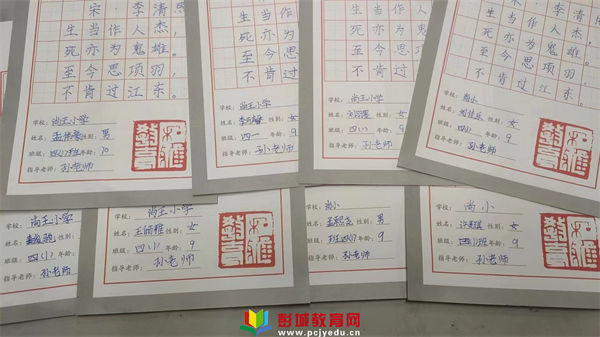 宋·李清照
生当作人杰，
死亦为鬼雄。
至今思项羽，
不肯过江东。
学校：尚王小学
姓名： 性别：男
班级：四(1)班 年龄：10
指导老师：孙老师
生当作
死亦为
至今思
不肯过
学校：尚王小学
姓名： 性别：女
班级：四一 年龄：9
指导老师：孙老师
生当作人杰，
死亦为鬼雄
至今思项羽，
不肯过江东
学校：尚王小学
姓名： 性别：女
班级：四(1) 年龄：9
指导老师：孙老师
宋·李清
生当作人
死亦为鬼雄。
至今思项羽，
不肯过江东。
学校：尚小
姓名：刘佳乐 性别：女
班级：四(1) 年龄：9
指导老师：孙老师
学校：尚王小学
姓名： 性别：
班级：四(1) 年龄：9
指导老师：孙老师
学校：尚王小学
姓名：王丽雅 性别：女
班级：四(1) 年龄：9
指导老师：孙老师
学校：尚小
姓名：孟熙尧 性别：男
班级：四(1) 年龄：9
指导老师：孙老师
学校：尚小
姓名： 性别：女
班级：四(1)班 年龄：9
指导老师：孙老师
彭城教育网
www.pcjyedu.cn